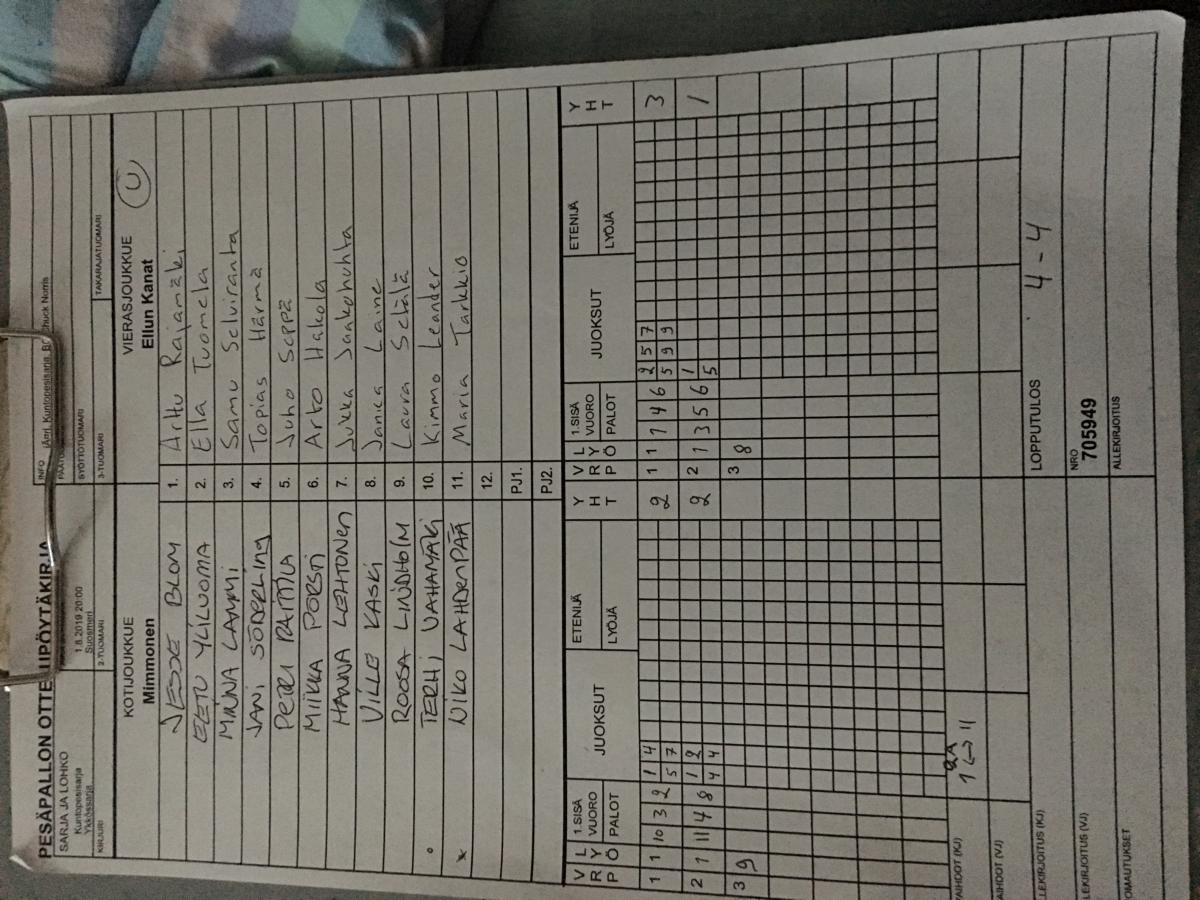 PESÄPALLON OTTELUPÖYTÄKIRJA
SARJA JA LOHKO
Kuntopesisarja
Ykkössarja
1.8.2019 20:00
Suosmeri
INFO
Kuntopesisarja
Chuck Norris
SYÖTTÖTUOMARI
KIRJURI
2-TUOMARI
3-TUOMARI
TAKARAJATUOMARI
KOTIJOUKKUE
Mimmonen
VIERASJOUKKUE
Ellun Kanat
U
JESSE BLOM 1. Arttu Rajamäki
EETU YLILUOMA 2. Ella Tuomela
MINNA LAMMI 3. Samu Selviranta
JANI SÖDERLING 4. Topias Härmä
PETRI RAITTILA 5. Juho Seppä
MIIKKA PORSTI 6. Arto Hakola
HANNA LEHTONEN 7. Jukka Jaakohuhta
VILLE KASKI 8. Janica Laine
ROOSA LINDHOLM 9. Laura Setälä
TERHI VAHAMÄKI 10. Kimmo Leander
NIKO LAHDENPÄÄ 11. Maria Tarkkio
12.
PJ1.
PJ2.
V R P L Y Ö 1.SISÄ VUORO PALOT JUOKSUT ETENIJÄ LYÖJÄ Y H T V R P L Y Ö 1.SISÄ VUORO PALOT JUOKSUT ETENIJÄ LYÖJÄ Y H T
1 1 10 3 2 1 4 2 1 1 1 4 6 2 5 7 3
5 7 5 9 9
2 1 11 4 8 1 2 2 2 1 3 5 6 1 1
4 4 5
3 9 3 8
VAIHDOT (KJ) 1 <-> 11
VAIHDOT (VJ)
LOPPUTULOS 4 - 4
ALLEKIRJOITUS (KJ)
NRO
705949
ALLEKIRJOITUS (VJ)
ALLEKIRJOITUS
HUOMAUTUKSET